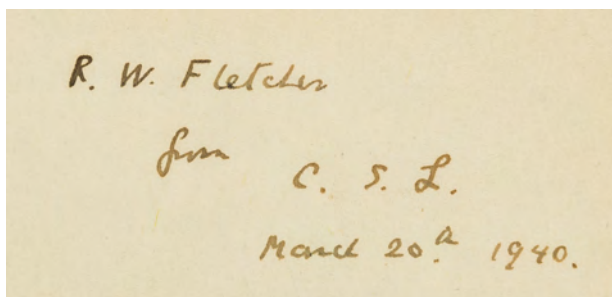 R. W. Fletcher
from
C. S. L.
March 20.th 1940.